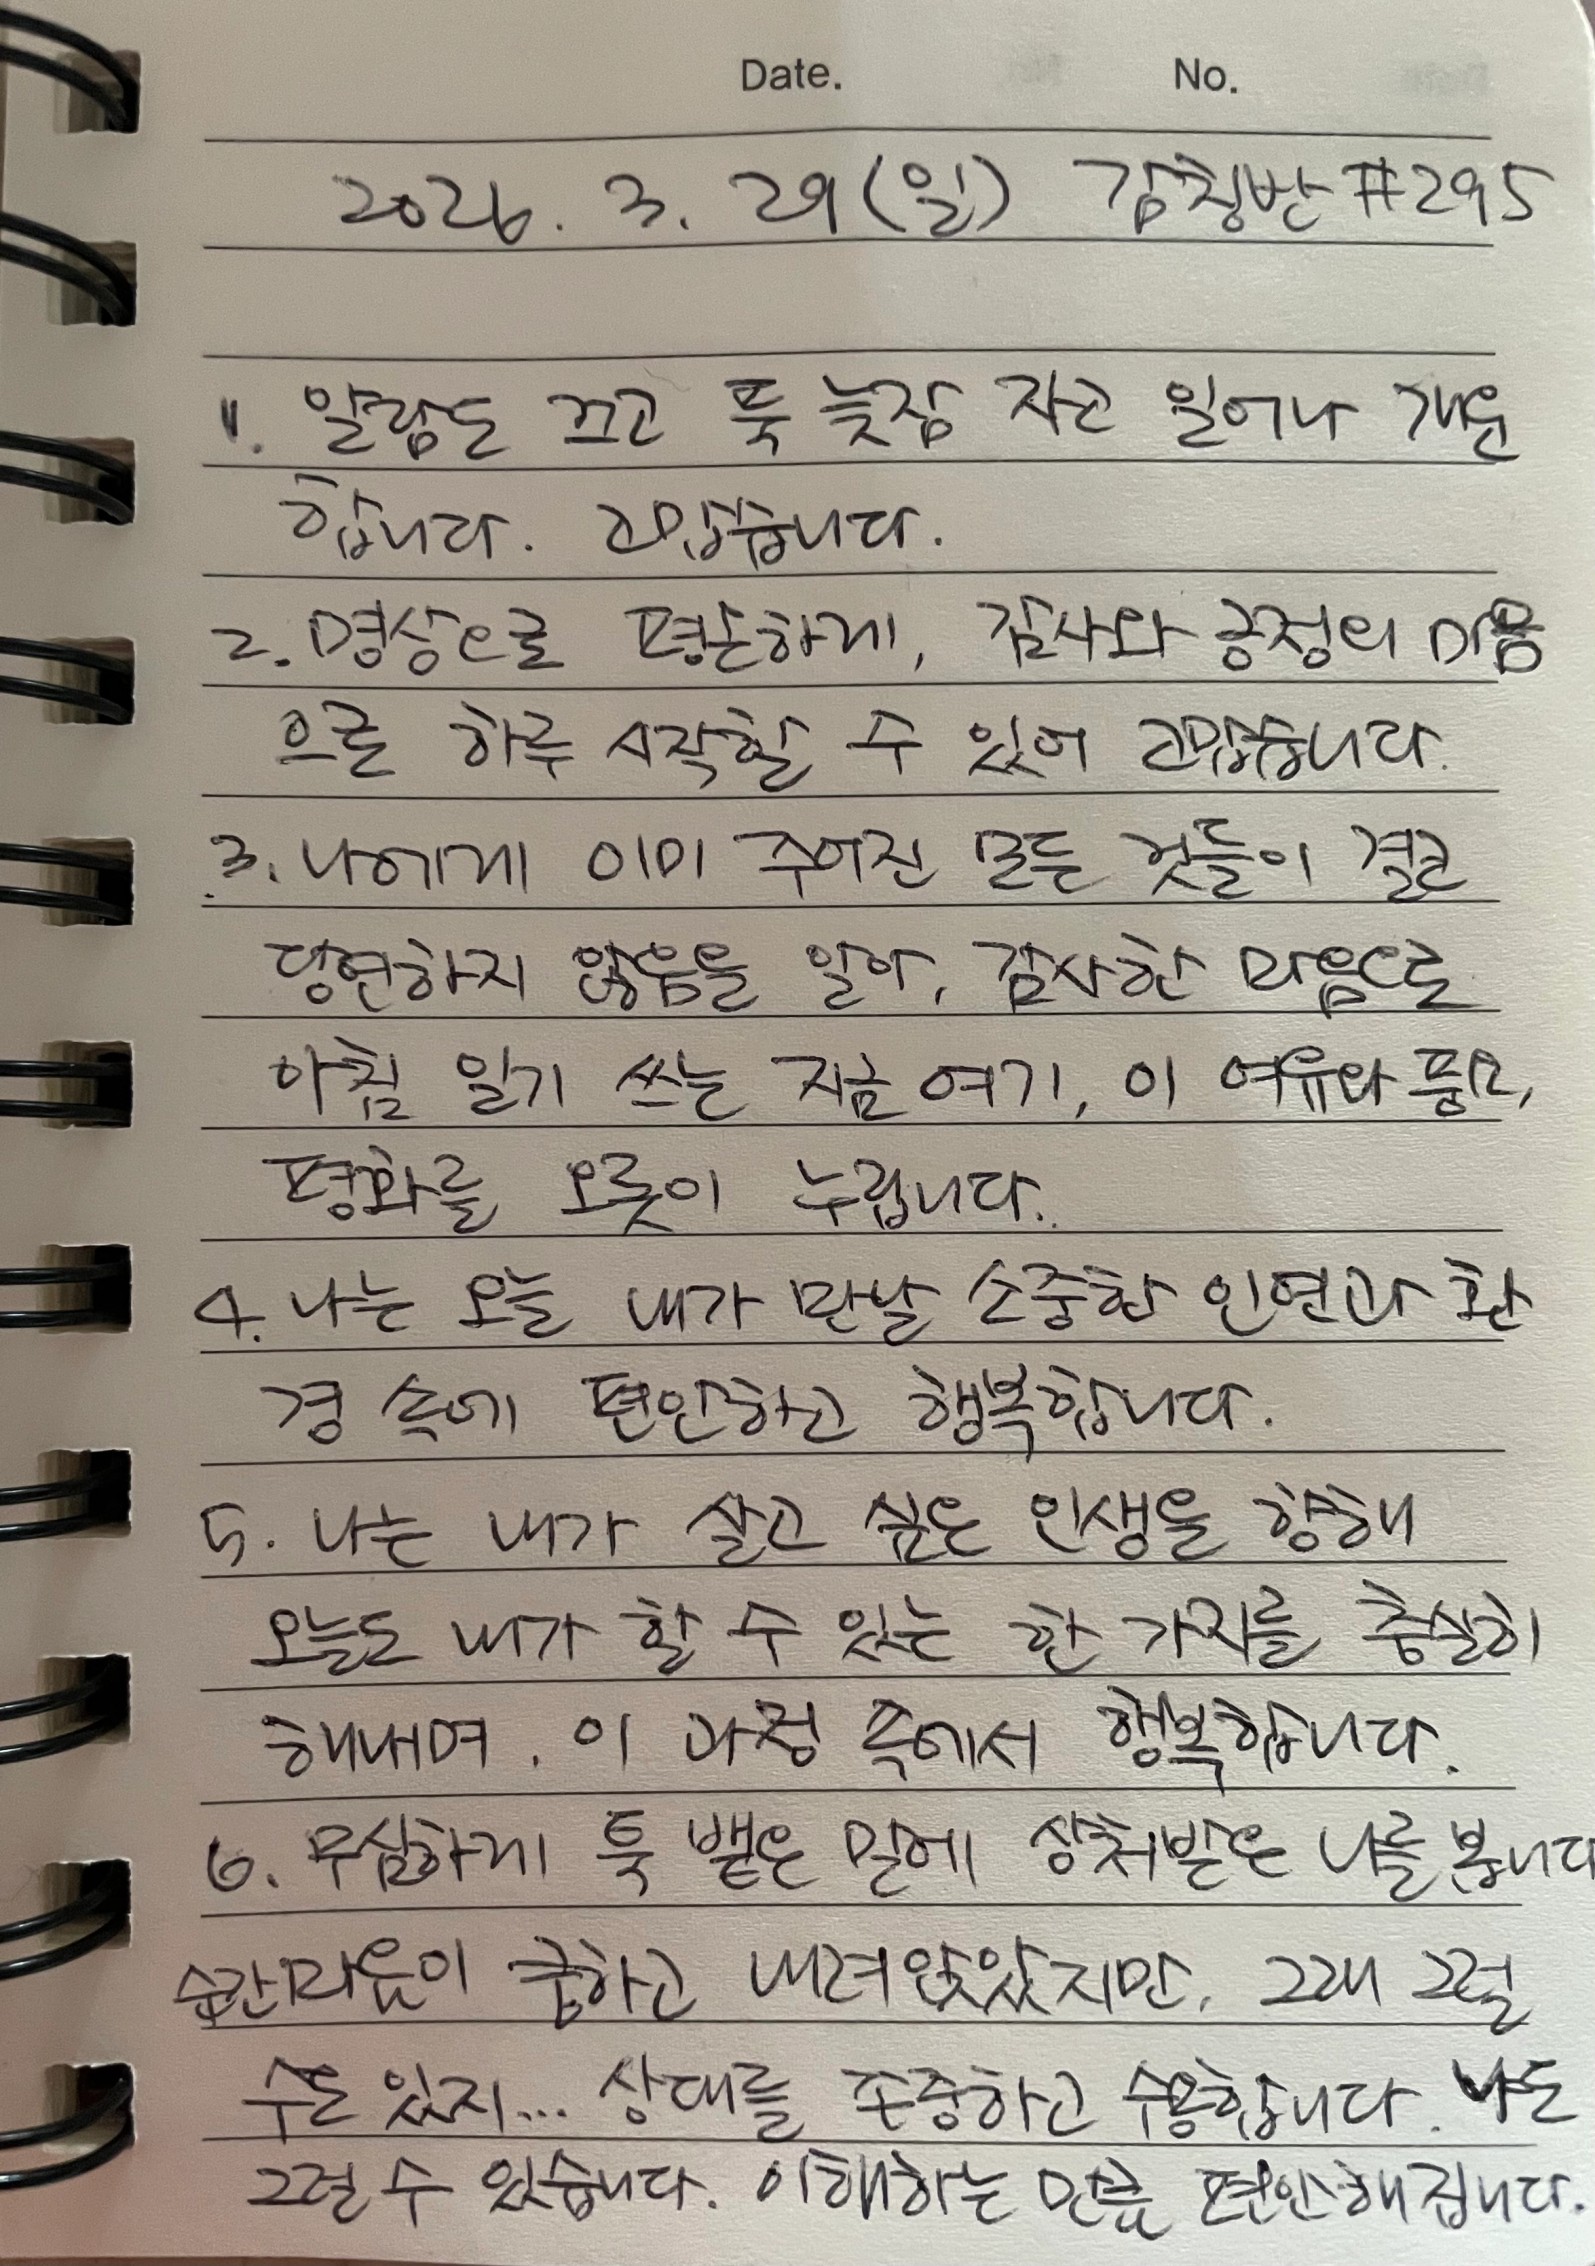 Date. No.
2026. 3. 29(일) 감칭반 #295
1. 알람도 끄고 푹 늦잠 자고 일어나 개운
합니다. 고맙습니다.
2. 명상으로 평온하게, 감사와 긍정의 마음
으로 하루 시작할 수 있어 고맙습니다.
3. 나에게 이미 주어진 모든 것들이 결코
당연하지 않음을 알아, 감사한 마음으로
아침 일기 쓰는 지금 여기, 이 여유와 풍요,
평화를 오롯이 누립니다.
4. 나는 오늘 내가 만날 소중한 인연과 환
경 속에 편안하고 행복합니다.
5. 나는 내가 살고 싶은 인생을 향해
오늘도 내가 할 수 있는 한 가지를 충실히
해내며, 이 과정 속에서 행복합니다.
6. 무심하게 툭 뱉은 말에 상처받은 나를 봅니다
순간 마음이 쿵하고 내려앉았지만, 그래 그럴
수도 있지... 상대를 존중하고 수용합니다. 나도
그럴 수 있습니다. 이해하는 만큼 편안해집니다.